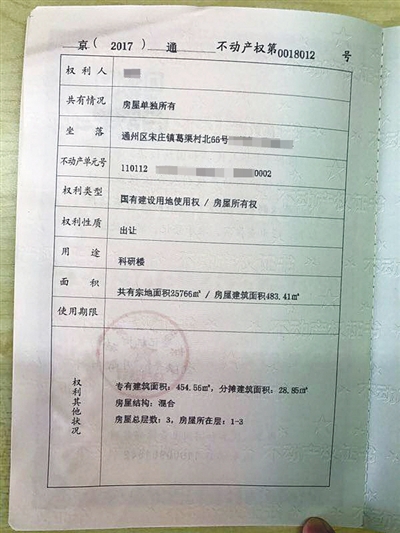 京（2017）通 不动产权第0018012 号
权利人
共有情况 房屋单独所有
坐落 通州区宋庄镇葛渠村北66号
不动产单元号 110112 0002
权利类型 国有建设用地使用权 / 房屋所有权
权利性质 出让
用途 科研楼
面积 共有宗地面积25766㎡ / 房屋建筑面积483.41㎡
使用期限
权利其他状况
专有建筑面积：454.56㎡，分摊建筑面积：28.85㎡
房屋结构：混合
房屋总层数：3，房屋所在层：1-3